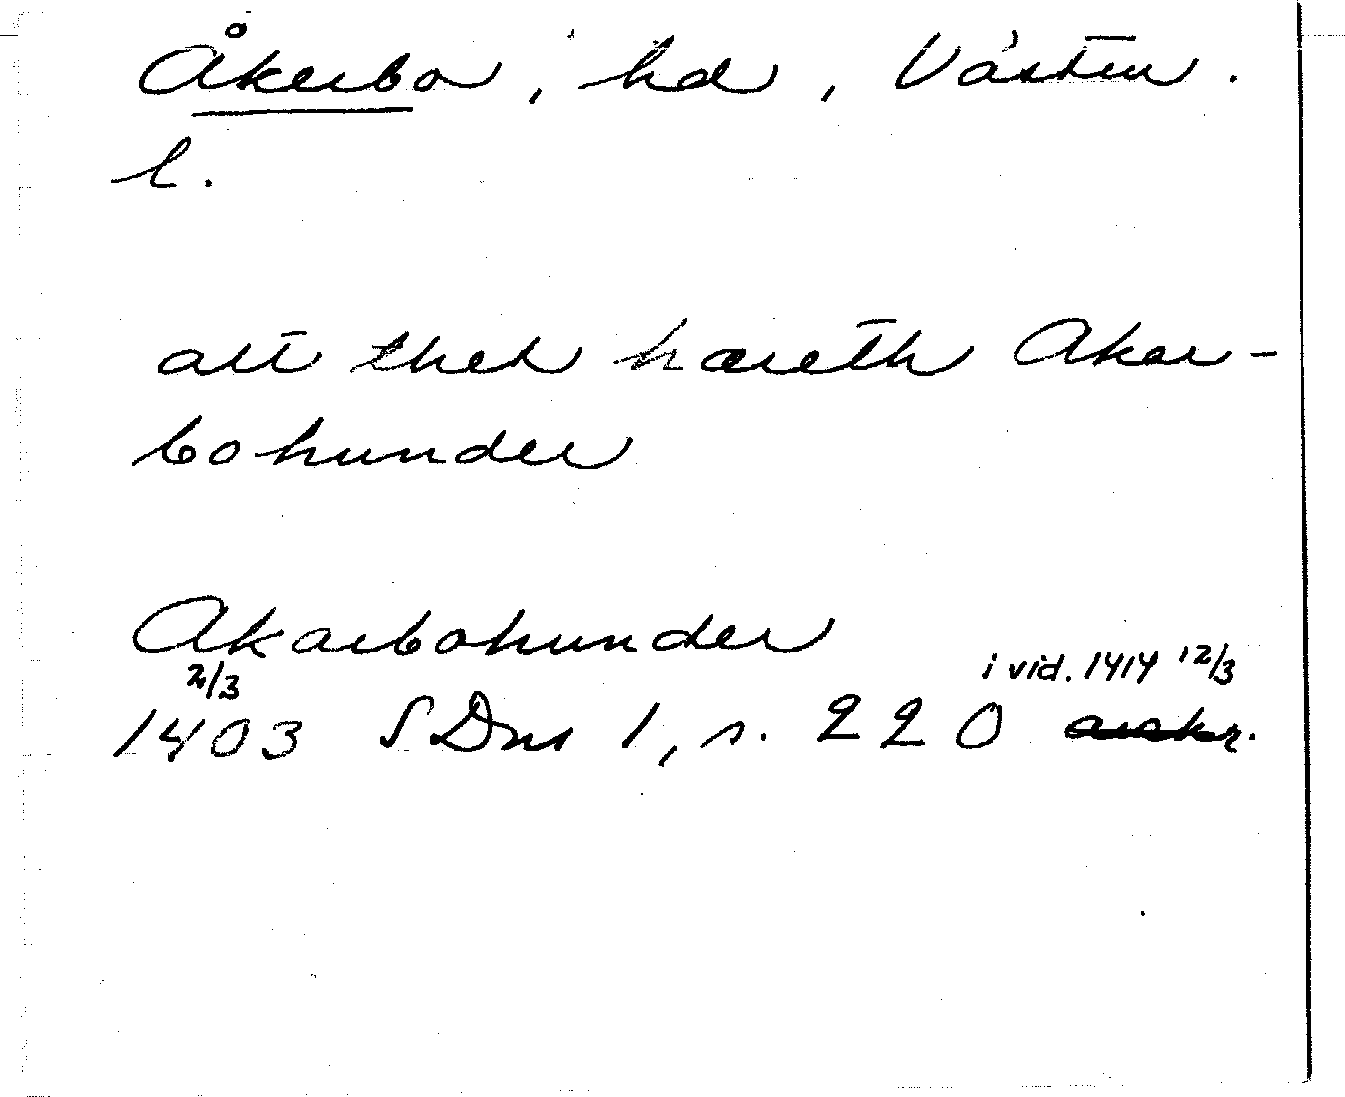 Åkerbo, hd, Västm.
l.
att thet hæreth Akar-
bohunder
Akarbohunder
2/3 i vid. 1414 12/3
1403 SDns 1, s. 220 avskr.